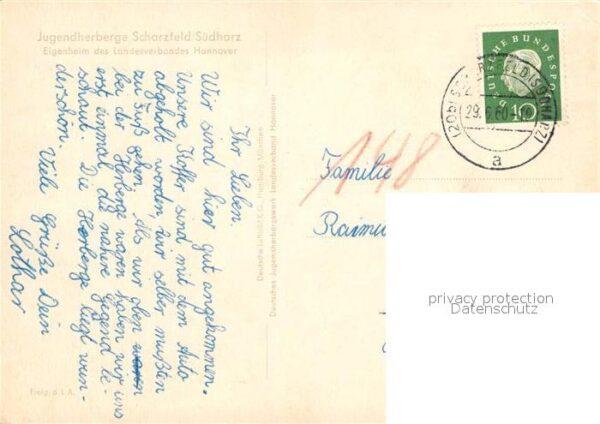 Jugendherberge Scharzfeld/Südharz
Eigenheim des Landesverbandes Hannover
Ihr Lieben.
Wir sind hier gut angekommen.
Unsere Koffer sind mit dem Auto
abgeholt worden, wir selber mußten
zu Fuß gehen. Als wir oben waren
bei der Herberge waren haben wir uns
erst einmal die nähere Gegend be-
schaut. Die Herberge liegt wun-
derschön.
Viele Grüße Dein
Lothar
Freig. d. L.A.
Deutsche Luftbild K.G., Hamburg
Deutsches Jugendherbergswerk Landesverband Hannover
DEUTSCHE BUNDESPOST
10
29.6.60
(SÜDHARZ)
(20b)
a
1448
Familie
Raimu
privacy protection
Datenschutz